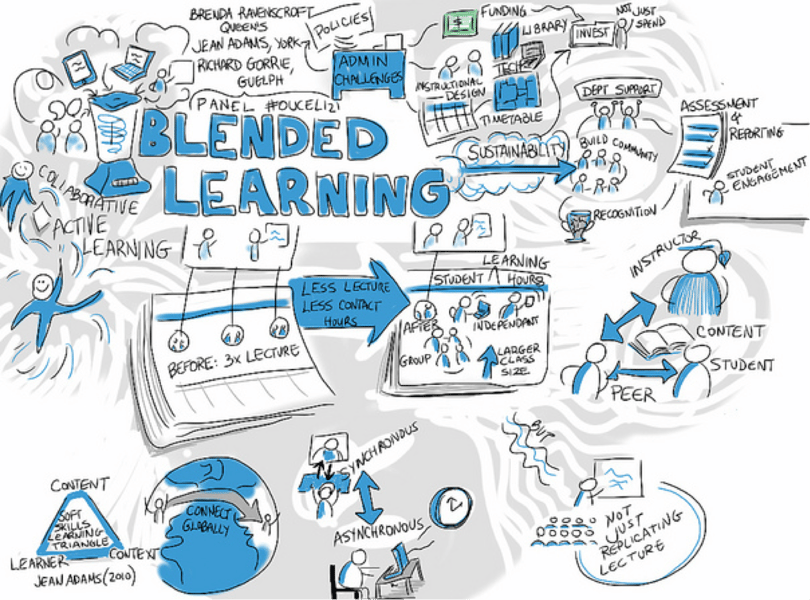 BRENDA RAVENSCROFT
QUEEN'S
JEAN ADAMS, YORK
RICHARD GORRIE,
GUELPH
POLICIES
ADMIN
CHALLENGES
FUNDING
$
LIBRARY
TECH
INSTRUCTIONAL
DESIGN
TIMETABLE
INVEST
NOT JUST
SPEND
PANEL #OUCEL121
BLENDED
LEARNING
SUSTAINABILITY
DEPT SUPPORT
BUILD COMMUNITY
RECOGNITION
ASSESSMENT
&
REPORTING
STUDENT
ENGAGEMENT
COLLABORATIVE
ACTIVE
LEARNING
BEFORE: 3X LECTURE
LESS LECTURE
LESS CONTACT
HOURS
LEARNING
STUDENT ∧ HOURS
AFTER
INDEPENDANT
GROUP
LARGER
CLASS
SIZE
INSTRUCTOR
CONTENT
STUDENT
PEER
CONTENT
SOFT
SKILLS
LEARNING
TRIANGLE
LEARNER
CONTEXT
JEAN ADAMS (2010)
CONNECT
GLOBALLY
SYNCHRONOUS
ASYNCHRONOUS
BUT
NOT
JUST
REPLICATING
LECTURE